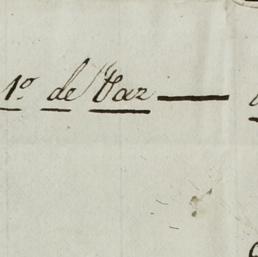 1º de Vaz